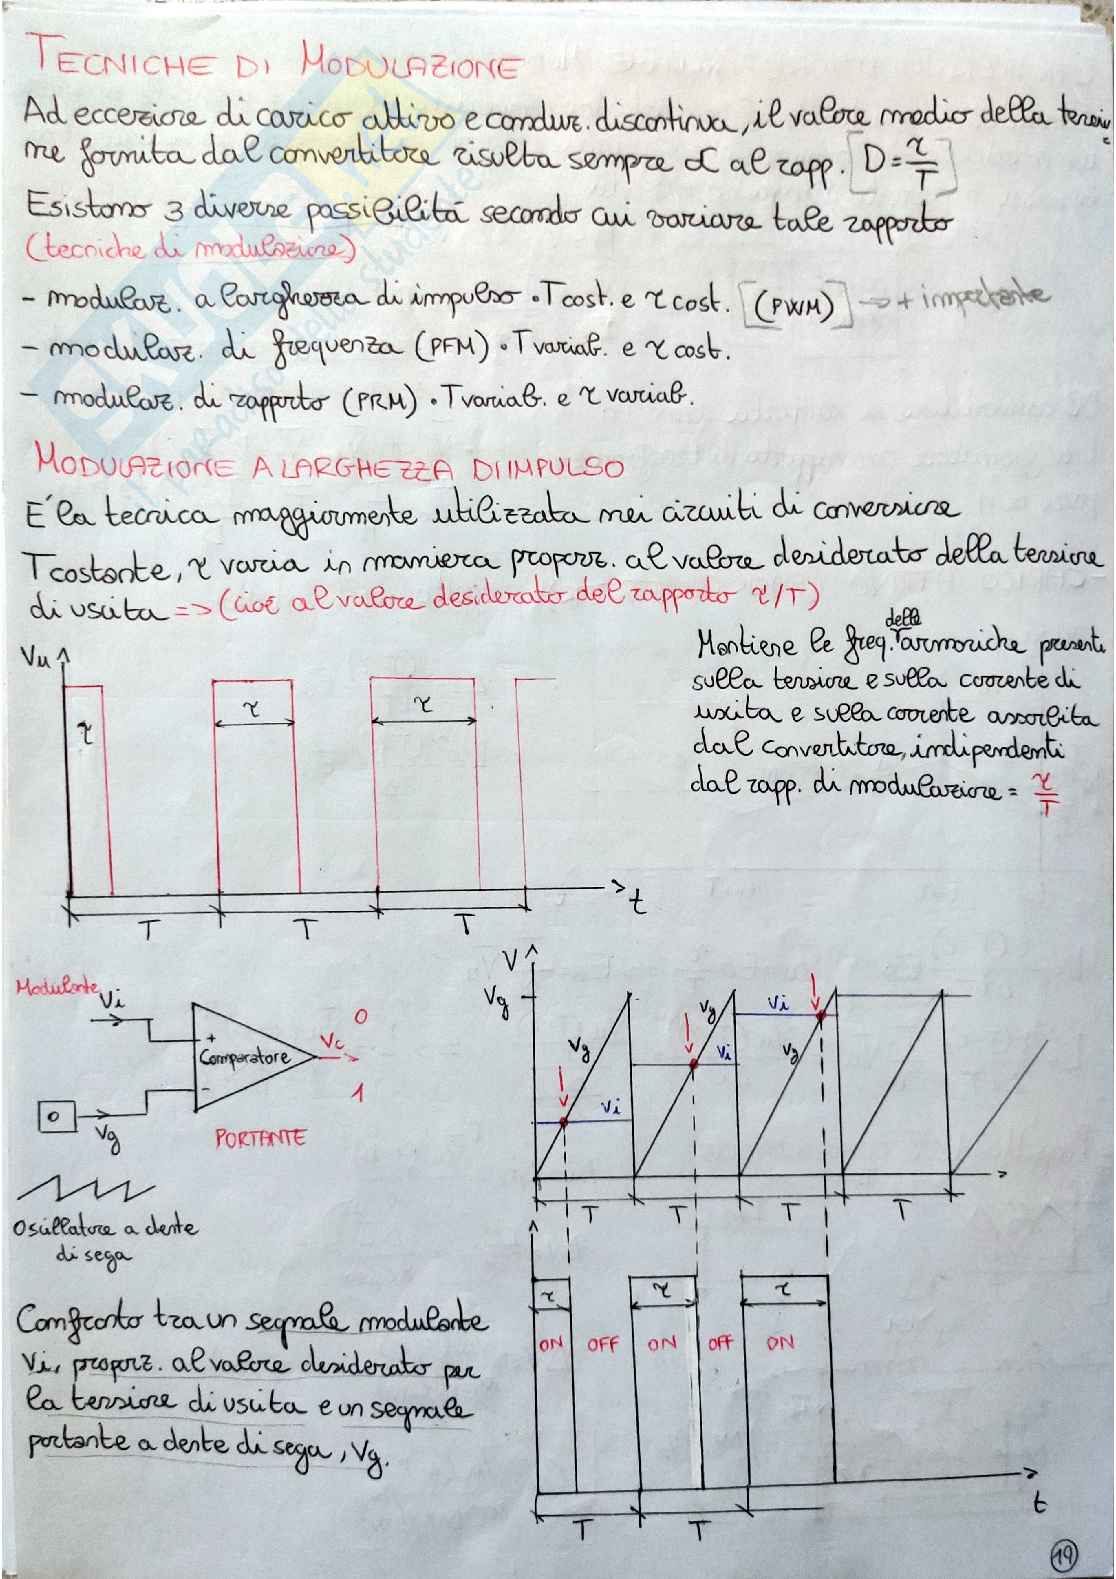 TECNICHE DI MODULAZIONE
Ad eccezione di carico attivo e conduz. discontinua, il valore medio della tensio
ne fornita dal convertitore risulta sempre ∝ al rapp. [D = τ/T]
Esistono 3 diverse possibilità secondo cui variare tale rapporto
(tecniche di modulazione)
- modulaz. a larghezza di impulso • T cost. e τ cost. [(PWM)] → + importante
- modulaz. di frequenza (PFM) • T variab. e τ cost.
- modulaz. di rapporto (PRM) • T variab. e τ variab.
MODULAZIONE A LARGHEZZA DI IMPULSO
E' la tecnica maggiormente utilizzata nei circuiti di conversione
T costante, τ varia in maniera proporz. al valore desiderato della tensione
di uscita => (cioè al valore desiderato del rapporto τ/T)
Mantiene le freq. delle armoniche presenti
sulla tensione e sulla corrente di
uscita e sulla corrente assorbita
dal convertitore, indipendenti
dal rapp. di modulazione = τ/T
Vu
τ
τ
τ
t
T
T
T
Modulante
Vi
+
Comparatore
-
Vc
0
1
Vg
PORTANTE
Oscillatore a dente
di sega
V
Vg
Vg
Vi
Vg
Vi
Vi
Vg
T
T
T
T
τ
τ
τ
ON
OFF
ON
OFF
ON
T
T
t
Confronto tra un segnale modulante
Vi, proporz. al valore desiderato per
la tensione di uscita e un segnale
portante a dente di sega, Vg.
19